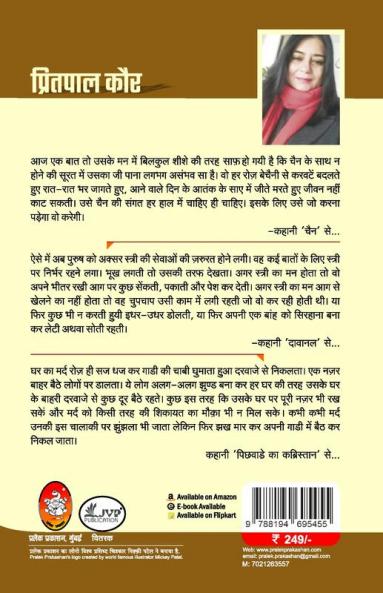 प्रितपाल कौर
आज एक बात तो उसके मन में बिलकुल शीशे की तरह साफ़ हो गयी है कि चैन के साथ न
होने की सूरत में उसका जी पाना लगभग असंभव सा है। वो हर रोज़ बेचैनी से करवटें बदलते
हुए रात-रात भर जागते हुए, आने वाले दिन के आतंक के साए में जीते मरते हुए जीवन नहीं
काट सकती। उसे चैन की संगत हर हाल में चाहिए ही चाहिए। इसके लिए उसे जो करना
पड़ेगा वो करेगी।
-कहानी 'चैन' से...
ऐसे में अब पुरुष को अक्सर स्त्री की सेवाओं की ज़रुरत होने लगी। वह कई बातों के लिए स्त्री
पर निर्भर रहने लगा। भूख लगती तो उसकी तरफ देखता। अगर स्त्री का मन होता तो वो
अपने भीतर रखी आग पर कुछ सेंकती, पकाती और पेश कर देती। अगर स्त्री का मन आग से
खेलने का नहीं होता तो वह चुपचाप उसी काम में लगी रहती जो वो कर रही होती थी। या
फिर कुछ भी न करती हुयी इधर-उधर डोलती, या फिर अपनी एक बांह को सिरहाना बना
कर लेटी अथवा सोती रहती।
-कहानी 'दावानल' से...
घर का मर्द रोज़ ही सज धज कर गाडी की चाबी घुमाता हुआ दरवाजे से निकलता। एक नज़र
बाहर बैठे लोगों पर डालता। ये लोग अलग-अलग झुण्ड बना कर हर घर की तरह उसके घर
के बाहरी दरवाजे से कुछ दूर बैठे रहते। कुछ इस तरह कि उसके घर पर पूरी नज़र भी रख
सकें और मर्द को किसी तरह की शिकायत का मौक़ा भी न मिल सके। कभी कभी मर्द
उनकी इस चालाकी पर झुंझला भी जाता लेकिन फिर झख मार कर अपनी गाडी में बैठ कर
निकल जाता।
कहानी 'पिछवाडे का कब्रिस्तान' से...
प्रलेक प्रकाशन, मुंबई
JVP
PUBLICATION
वितरक
प्रलेक प्रकाशन का लोगो विश्व प्रसिद्ध चित्रकार मिक्की पटेल ने बनाया है.
Pralek Prakashan's logo created by world famous illustrator Mickey Patel.
Available on Amazon
E-book Available
Available on Flipkart
9 788194 695455
₹ 249/-
Web: www.pralekprakashan.com
email: pralek.prakashan@gmail.com
M: 7021263557